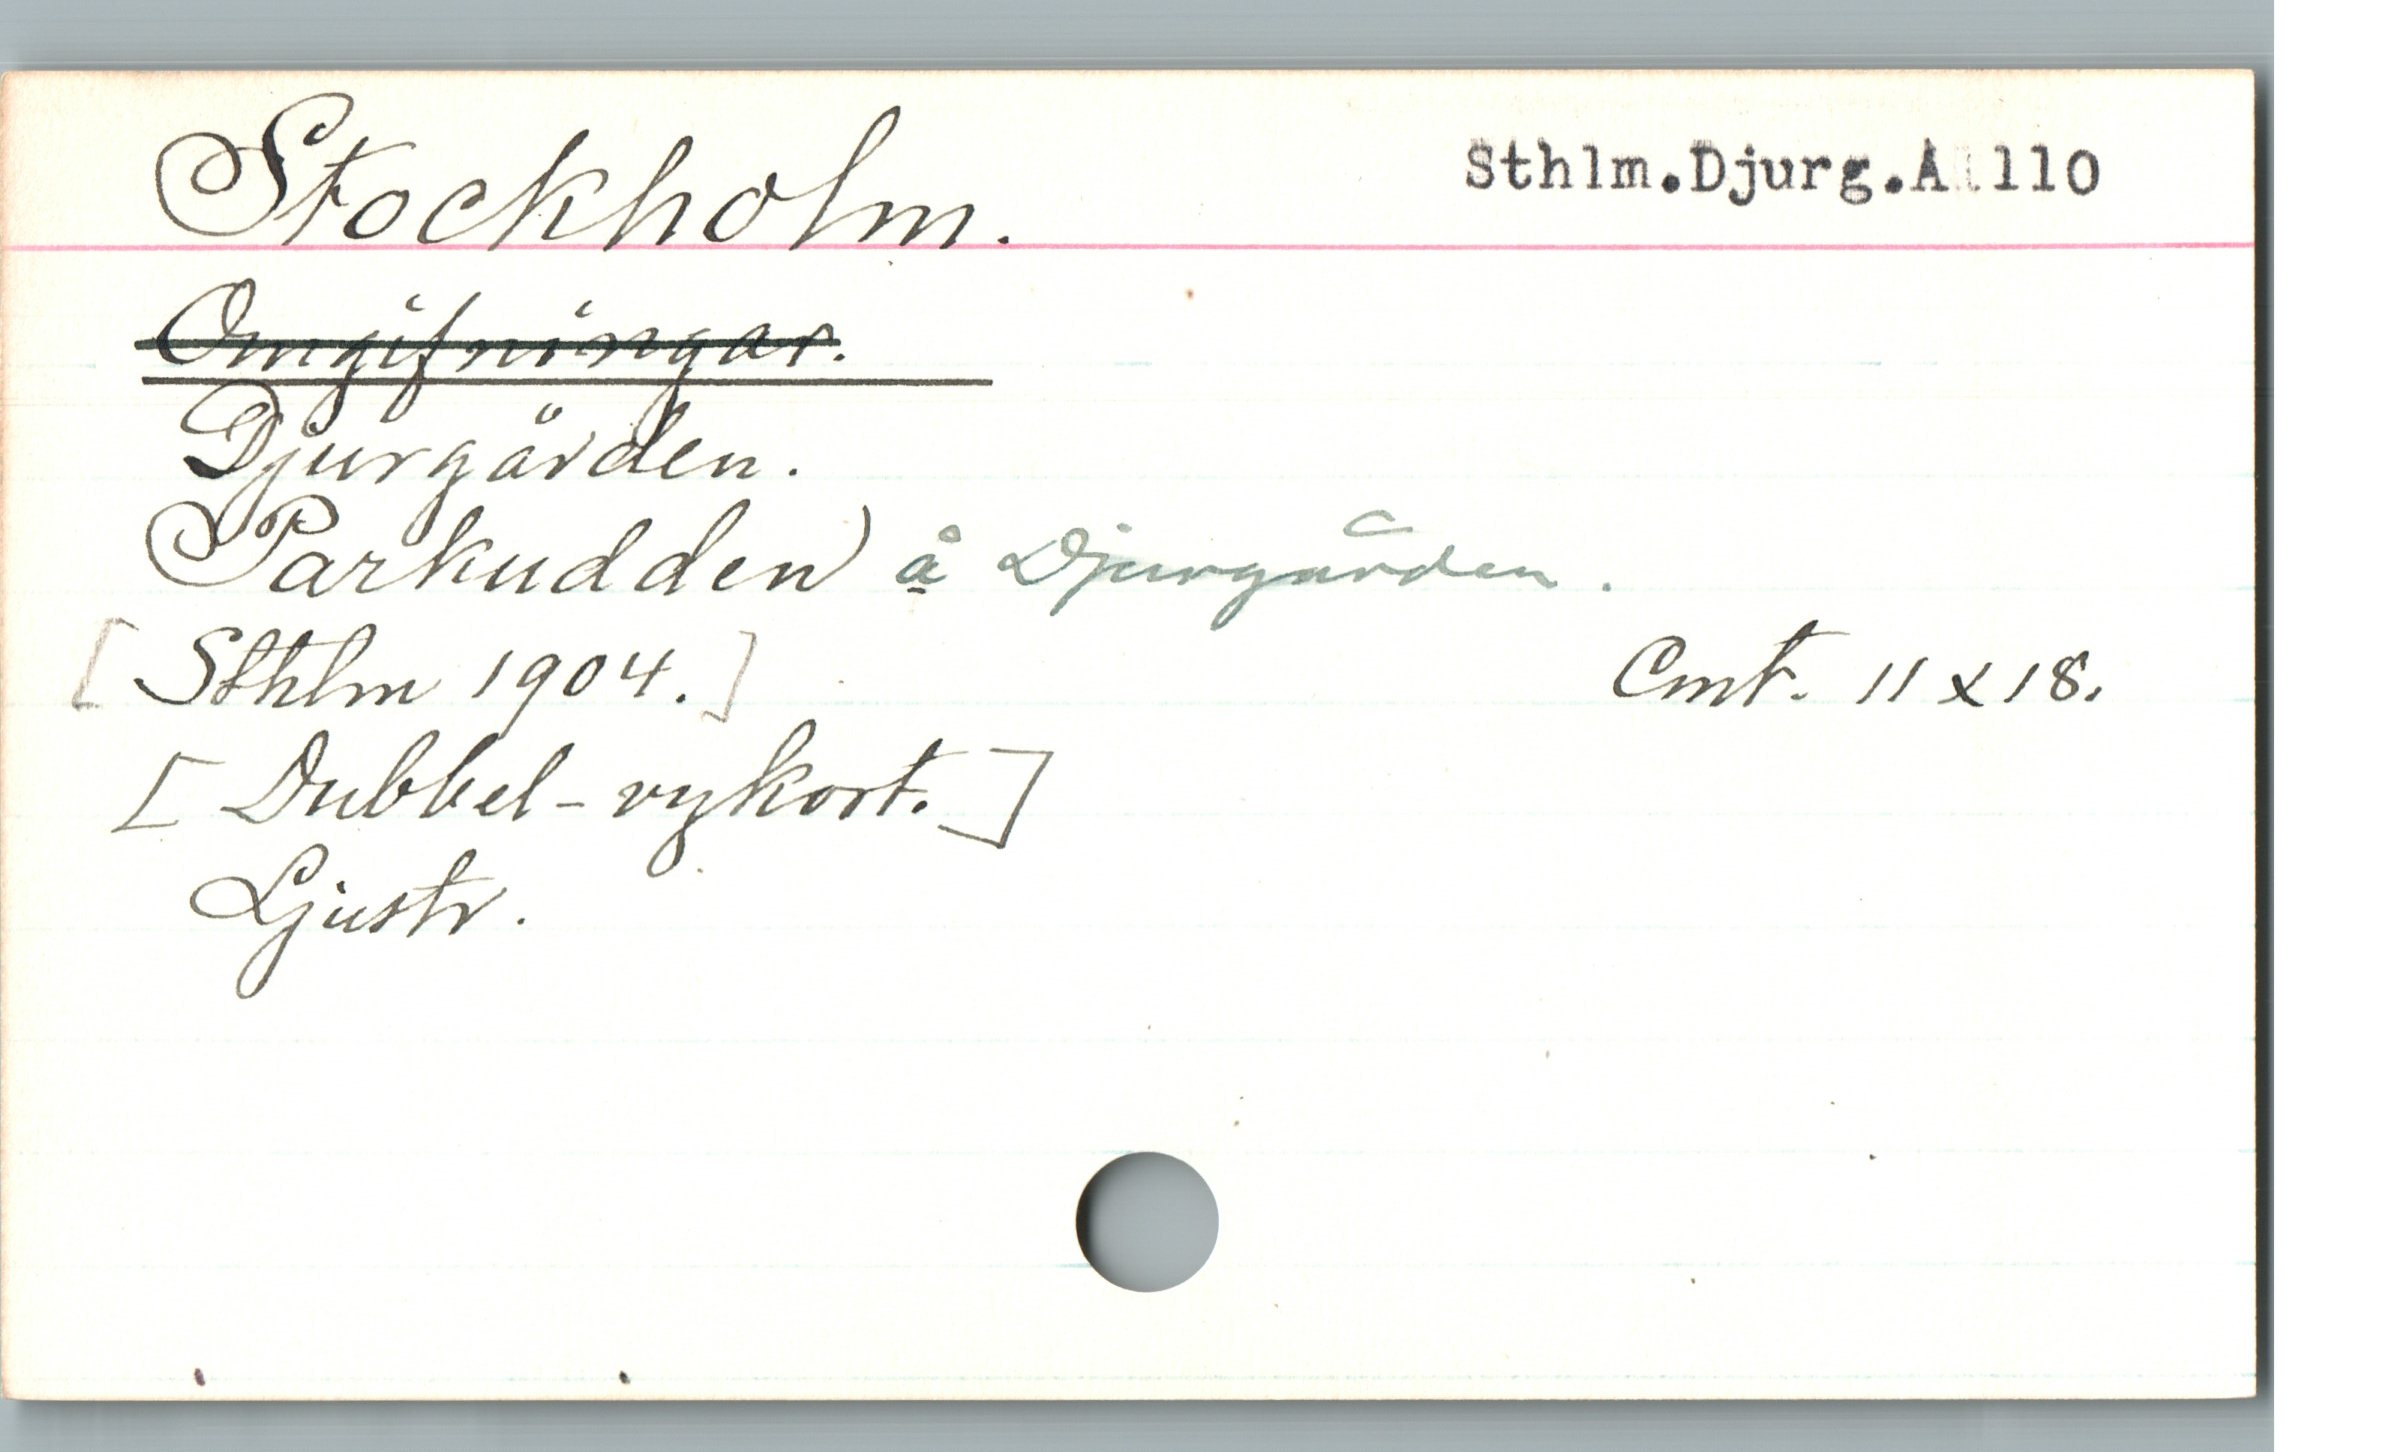 Stockholm. Sthlm.Djurg.A 110
Omgifningar.
Djurgården.
Parkudden) å Djurgården.
[Sthlm 1904.] Cmt. 11 x 18.
[Dubbel-vykort.]
Ljustr.